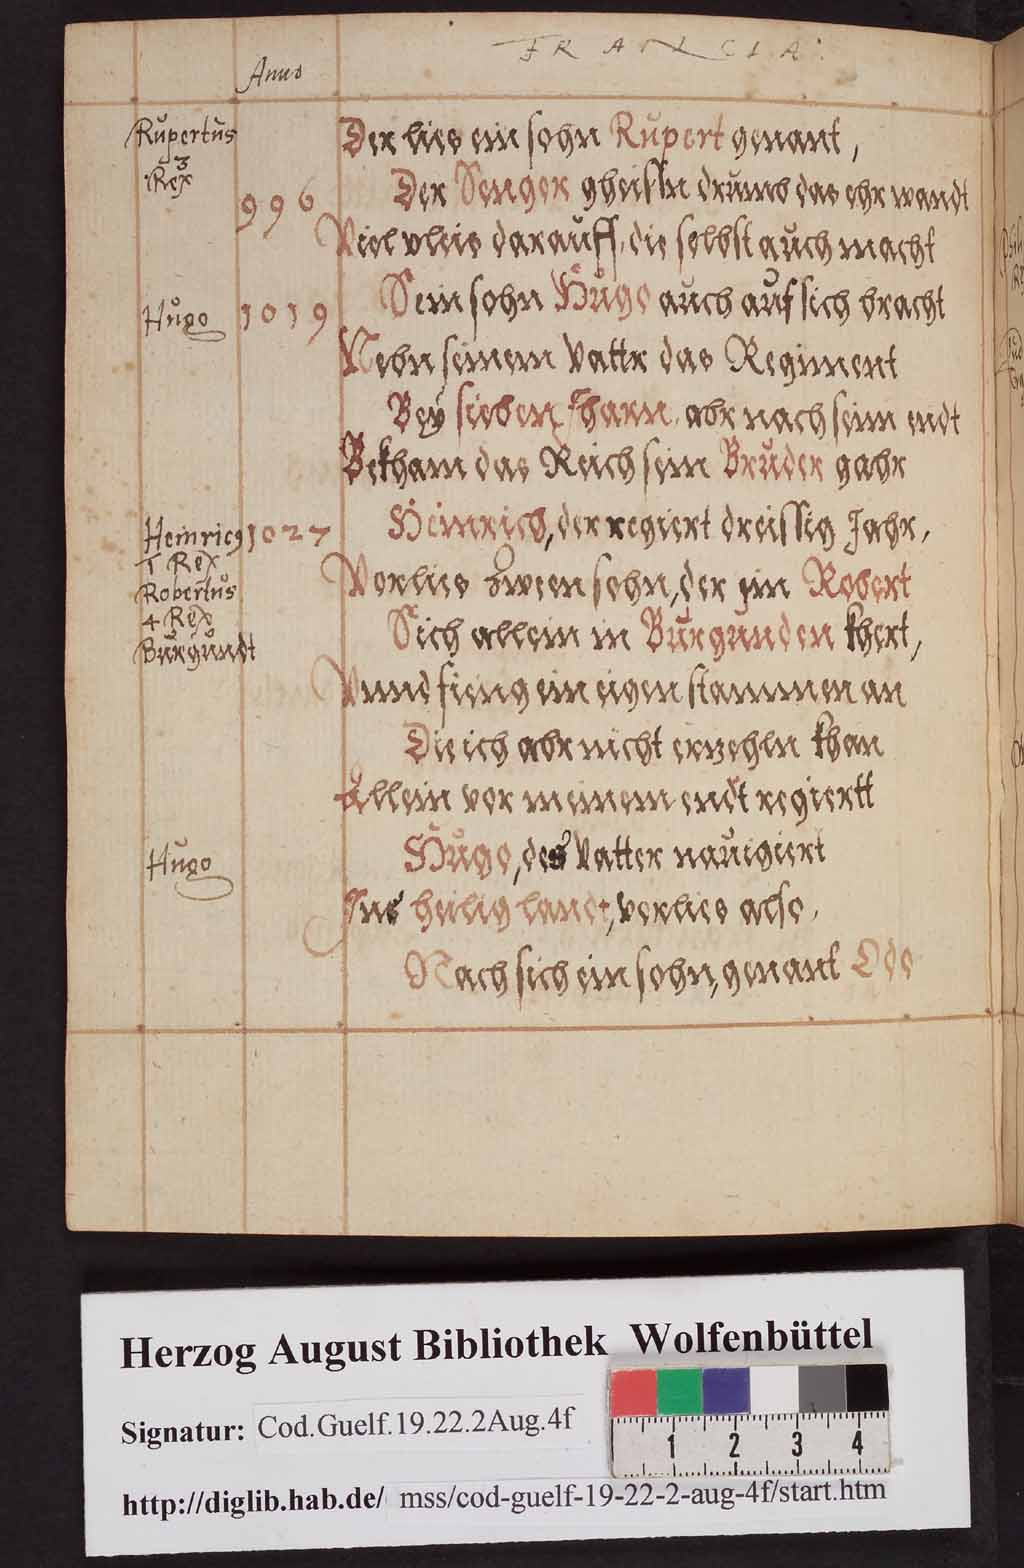 FRANCIA.
Anno
Rupertus
3
Rex
996
Der lies ein sohn Rupert genant,
Der Senger gheissn drumb das ehr wandt
Viel vleis darauff, die selbst auch macht
Hugo 1019
Sein sohn Hugo auch auf sich bracht
Nebn seinem Vattr das Regiment
Bey sieben Jharn, abr nach seim endt
Bekham das Reich sein Bruder gahr
Heinricg 1027
1 Rex
Heinrich, der regiert dreissig Jahr,
Robertus
4 Rex
Vorlies zween sohn, der ein Robert
Burgundt
Sich allein in Burgunden khert,
Vnnd fieng ein eigen stammen an
Die ich abr nicht erzehln khan
Allein vor meinem endt regiertt
Hugo
Hugo, des Vatter nauigiert
Ins heilig landt, vorlies also,
Nach sich ein sohn, genant Odo
Herzog August Bibliothek Wolfenbüttel
Signatur: Cod.Guelf.19.22.2Aug.4f
1 2 3 4
http://diglib.hab.de/ mss/cod-guelf-19-22-2-aug-4f/start.htm